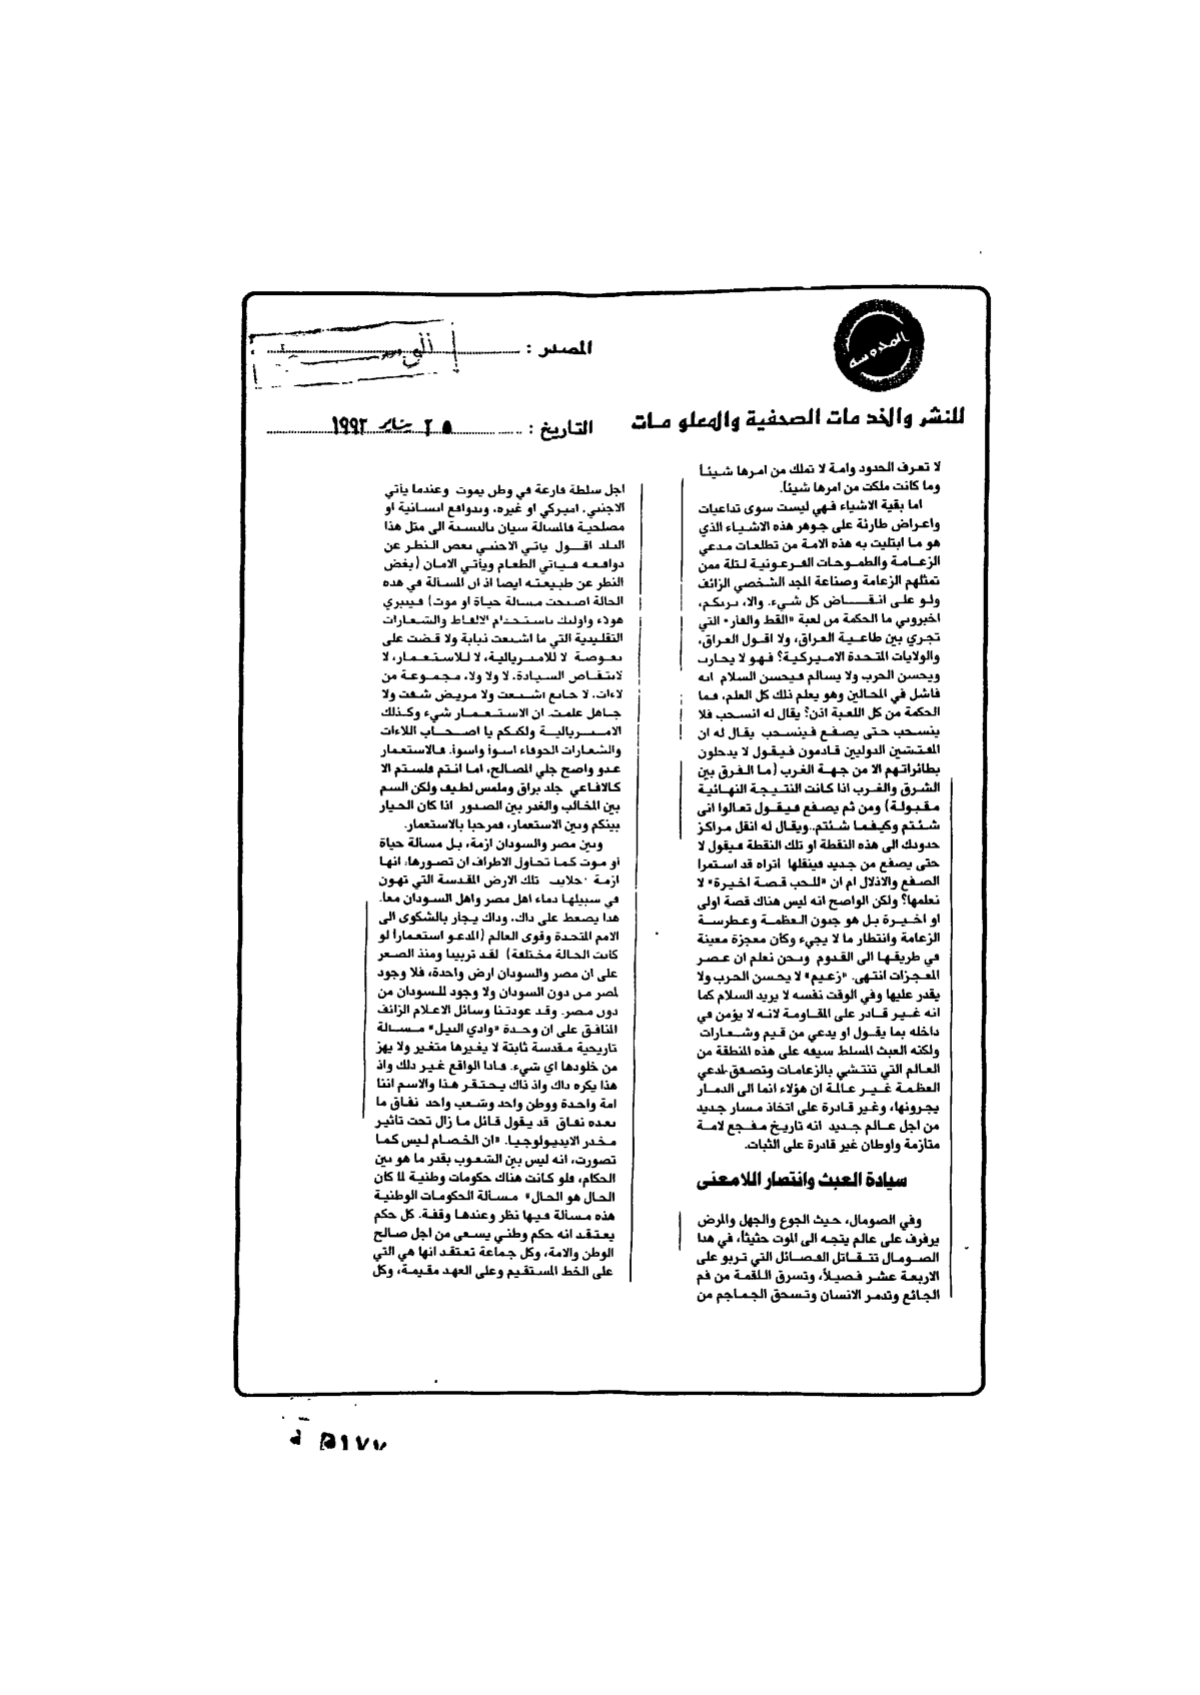 المحروسة
المصدر :
للنشر والخدمات الصحفية والمعلومات
التاريخ : ٢٥ يناير ١٩٩٢
لا تعرف الحدود وامة لا تملك من امرها شيئاً
وما كانت ملكت من امرها شيئاً.
اما بقية الاشياء فهي ليست سوى تداعيات
واعراض طارئة على جوهر هذه الاشياء الذي
هو ما ابتليت به هذه الامة من تطلعات مدعي
الزعامة والطموحات الفرعونية لثلة ممن
تمثلهم الزعامة وصناعة المجد الشخصي الزائف
ولو على انقاض كل شيء. والا، بربكم،
اخبروني ما الحكمة من لعبة «القط والفار» التي
تجري بين طاغية العراق، ولا اقول العراق،
والولايات المتحدة الاميركية؟ فهو لا يحارب
ويحسن الحرب ولا يسالم فيحسن السلام انه
فاشل في الحالين وهو يعلم ذلك كل العلم، فما
الحكمة من كل اللعبة اذن؟ يقال له انسحب فلا
ينسحب حتى يصفع فينسحب يقال له ان
المفتشين الدوليين قادمون فيقول لا يدخلون
بطائراتهم الا من جهة الغرب (ما الفرق بين
الشرق والغرب اذا كانت النتيجة النهائية
مقبولة) ومن ثم يصفع فيقول تعالوا انى
شئتم وكيفما شئتم..ويقال له انقل مراكز
حدودك الى هذه النقطة او تلك النقطة فيقول لا
حتى يصفع من جديد فينقلها اتراه قد استمرا
الصفع والاذلال ام ان «للحب قصة اخيرة» لا
نعلمها؟ ولكن الواضح انه ليس هناك قصة اولى
او اخيرة بل هو جنون العظمة وغطرسة
الزعامة وانتظار ما لا يجيء وكأن معجزة معينة
في طريقها الى القدوم ونحن نعلم ان عصر
المعجزات انتهى. «زعيم» لا يحسن الحرب ولا
يقدر عليها وفي الوقت نفسه لا يريد السلام كما
انه غير قادر على المقاومة لانه لا يؤمن في
داخله بما يقول او يدعي من قيم وشعارات
ولكنه العبث المسلط سيفه على هذه المنطقة من
العالم التي تنتشي بالزعامات وتصفق لمدعي
العظمة غير عالمة ان هؤلاء انما الى الدمار
يجرونها، وغير قادرة على اتخاذ مسار جديد
من اجل عالم جديد انه تاريخ مفجع لامة
متازمة واوطان غير قادرة على الثبات.
سيادة العبث وانتصار اللامعنى
وفي الصومال، حيث الجوع والجهل والمرض
يرفرف على عالم يتجه الى الموت حثيثاً، في هذا
الصومال تتقاتل الفصائل التي تربو على
الاربعة عشر فصيلاً، وتسرق اللقمة من فم
الجائع وتدمر الانسان وتسحق الجماجم من
اجل سلطة فارغة في وطن يموت وعندما يأتي
الاجنبي، اميركي او غيره، وبدوافع انسانية او
مصلحية فالمسالة سيان بالنسبة الى مثل هذا
البلد اقول ياتي الاجنبي بغض النظر عن
دوافعه فياتي الطعام ويأتي الامان (بغض
النظر عن طبيعته ايضا اذ ان المسألة في هذه
الحالة اصبحت مسالة حياة او موت) فينبري
هؤلاء واولئك باستخدام الالفاظ والشعارات
التقليدية التي ما اشبعت ذبابة ولا قضت على
بعوضة لا للامبريالية، لا للاستعمار، لا
لانتقاص السيادة، لا ولا ولا، مجموعة من
لاءات، لا جائع اشبعت ولا مريض شفت ولا
جاهل علمت. ان الاستعمار شيء وكذلك
الامبريالية ولكنكم يا اصحاب اللاءات
والشعارات الجوفاء اسوأ واسوأ. فالاستعمار
عدو واضح جلي المصالح، اما انتم فلستم الا
كالافاعي جلد براق وملمس لطيف ولكن السم
بين المخالب والغدر بين الصدور اذا كان الخيار
بينكم وبين الاستعمار، فمرحبا بالاستعمار.
وبين مصر والسودان ازمة، بل مسالة حياة
او موت كما تحاول الاطراف ان تصورها، انها
ازمة حلايب تلك الارض المقدسة التي تهون
في سبيلها دماء اهل مصر واهل السودان معا.
هذا يضغط على ذاك، وذاك يجأر بالشكوى الى
الامم المتحدة وقوى العالم (المدعو استعماراً لو
كانت الحالة مختلفة) لقد تربينا ومنذ الصغر
على ان مصر والسودان ارض واحدة، فلا وجود
لمصر من دون السودان ولا وجود للسودان من
دون مصر. وقد عودتنا وسائل الاعلام الزائف
المنافق على ان وحدة «وادي النيل» مسالة
تاريخية مقدسة ثابتة لا يغيرها متغير ولا يهز
من خلودها اي شيء. فاذا الواقع غير ذلك واذ
هذا يكره ذاك واذ ذاك يحتقر هذا والاسم اننا
امة واحدة ووطن واحد وشعب واحد نفاق ما
بعده نفاق قد يقول قائل ما زال تحت تاثير
مخدر الايديولوجيا. «ان الخصام ليس كما
تصورت، انه ليس بين الشعوب بقدر ما هو بين
الحكام، فلو كانت هناك حكومات وطنية لما كان
الحال هو الحال» مسالة الحكومات الوطنية
هذه مسالة فيها نظر وعندها وقفة. كل حكم
يعتقد انه حكم وطني يسعى من اجل صالح
الوطن والامة، وكل جماعة تعتقد انها هي التي
على الخط المستقيم وعلى العهد مقيمة، وكل